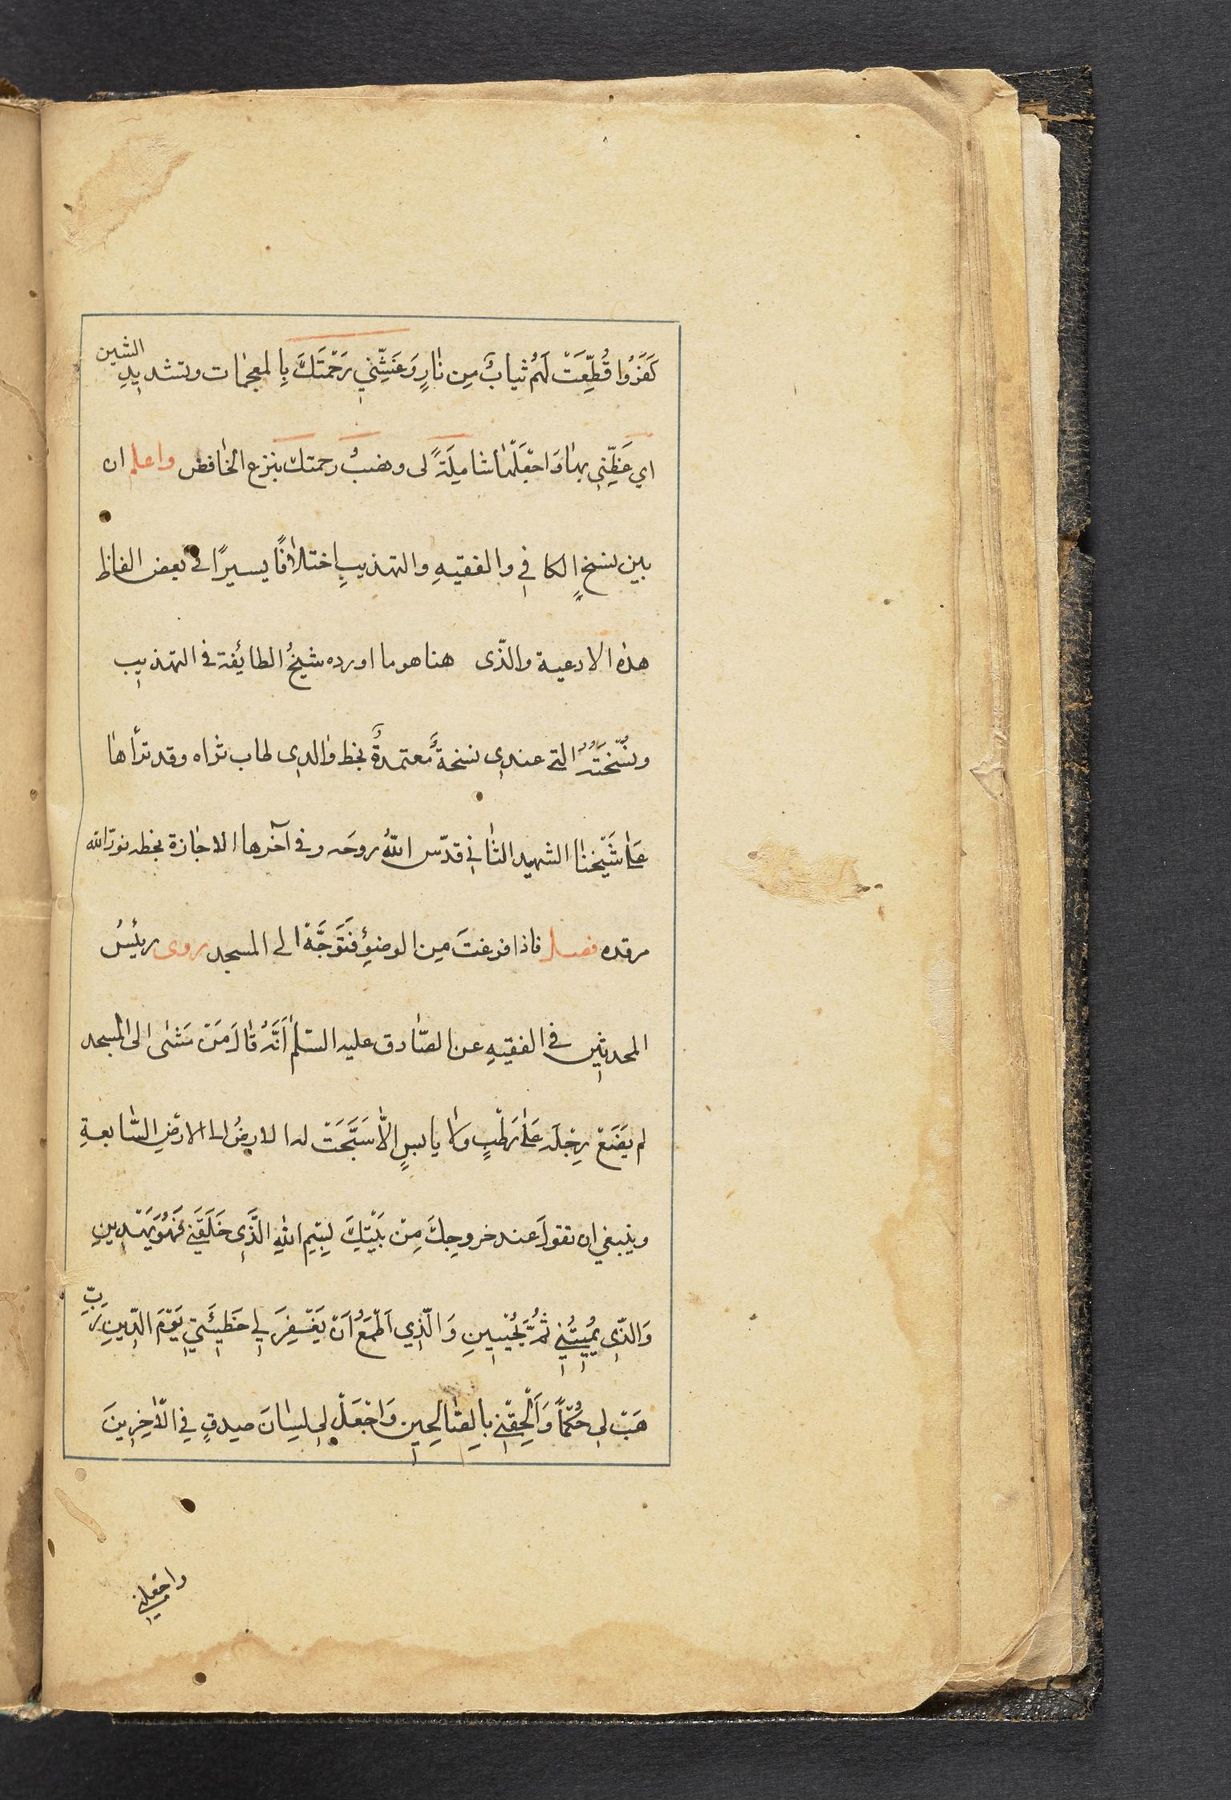 كَفَرُوا قُطِّعَتْ لَهُمْ ثيابٌ مِن نٰارٍ وَغَشِّنِي رَحْمَتَكَ بِالمعجمٰات وتشديدِ الشين
اي غَطِّنِي بهٰا وَاجْعَلْهٰا شامِلَةً لى ونصبُ رحمتك بنزع الخٰافض واعلم ان
بين نسخِ الكافِي والفقيهِ والتهذيبِ اختلافًا يسيرًا فى بعض الفاظ
هذه الادعية والذّى هنا هو ما اورده شيخُ الطائفة فى التهذيب
ونُسْخَتُهُ التى عندى نسخةٌ معتمدةٌ بخط والدى طاب ثراه وقد قرأها
عَلىٰ شَيْخنٰا الشهيد الثٰانى قدّس اللهُ روحَه وفى آخرها الاجٰازة بخطه نوّر الله
مرقده فصل فاذا فرغتَ مِن الوضوُءِ فَتَوَجَّهْ الى المسجد روى رئيسُ
المحدثين فى الفقيهِ عن الصّٰادق عليه السّلم أَنَّهُ قٰالَ مَنْ مَشٰى الى المسجد
لم يَضَعْ رِجْلَه عَلىٰ رَطْبٍ ولاٰ يابسٍ إلاّٰ سَبَّحَتْ له الارضُ الى الارَضِ السّٰابعةِ
وينبغي ان تقولَ عند خروجِكَ مِنْ بَيْتِكَ بِسْمِ اللهِ الَّذِى خَلَقَنِى فَهُوَ يَهْدِينِ
وَالَّذِى يُمِيتُنِي ثُمَّ يُحْيِينِ وَالَّذِي اَطْمَعُ اَنْ يَغْفِرَ لِي خَطِيئَتِي يَوْمَ الدِّينِ رَبِّ
هَبْ لِى حُكْمًا وَأَلْحِقْنِى بِالصّٰالِحِينَ وَاجْعَلْ لِى لِسٰانَ صِدقٍ فِي الْاٰخِرِينَ
واجعلنى